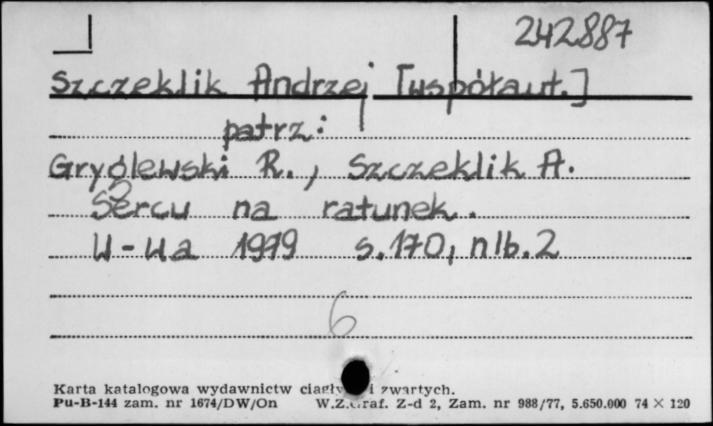 242887
Szczeklik Andrzej [współaut.]
patrz:
Gryglewski R., Szczeklik A.
Sercu na ratunek.
W-wa 1979 s.170, nlb.2
6
Karta katalogowa wydawnictw i zwartych.
Pu-B-144 zam. nr 1674/DW/On W.Z.Graf. Z-d 2, Zam. nr 988/77, 5.650.000 74 × 120